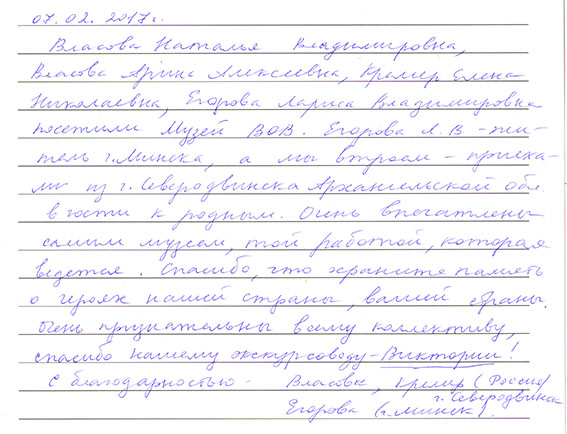 07.02.2017г.
Власова Наталья Владимировна,
Власова Арина Алексеевна, Кремер Елена
Николаевна, Егорова Лариса Владимировна
посетили Музей ВОВ. Егорова Л.В - жи-
тель г.Минска, а мы втроем - приеха-
ли из г.Северодвинска Архангельской обл.
в гости к родным. Очень впечатлены
самим музеем, той работой, которая
ведется. Спасибо, что храните память
о героях нашей страны, вашей страны.
Очень признательны всему коллективу,
спасибо нашему экскурсоводу - Виктории!
С благодарностью - Власовы, Кремер (Россия)
г. Северодвинск
Егорова (г.Минск).